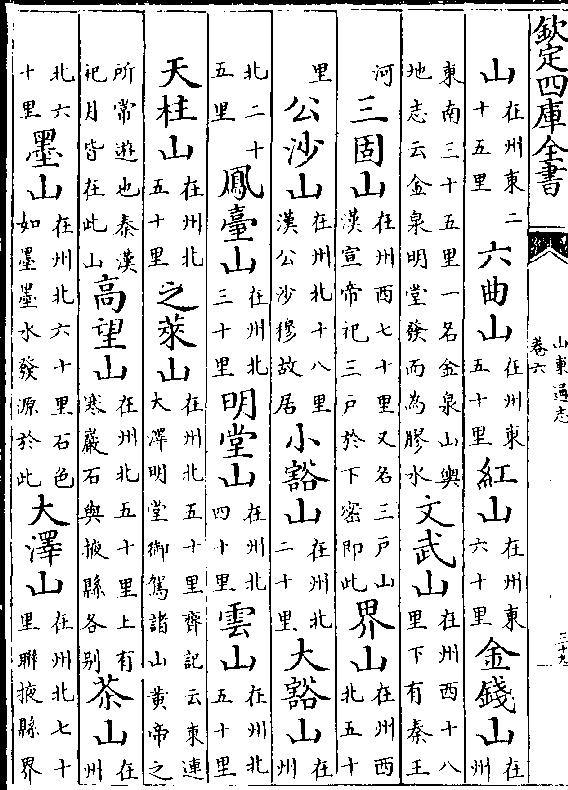 欽定四庫全書
山東通志
卷六
三十九
山在州東二十五里六曲山在州東五十里紅山在州東六十里金錢山在州
東南三十五里一名金泉山輿地志云金泉明堂發而為膠水文武山在州西十八里下有秦王
河三固山在州西七十里又名三戸山漢宣帝祀三戸於下密即此界山在州西北五十
里公沙山在州北十八里漢公沙穆故居小豁山在州北二十里大豁山在州
北二十五里鳳臺山在州北三十里明堂山在州北四十里雲山在州北五十里
天柱山在州北五十里之萊山在州北五十里齊記云東連大澤明堂御駕諸山黄帝之
所常遊也秦漢祀月皆在此山高望山在州北五十里上有寒巖石與掖縣各别茶山在州
北六十里墨山在州北六十里石色如墨墨水發源於此大澤山在州北七十里聯掖縣界